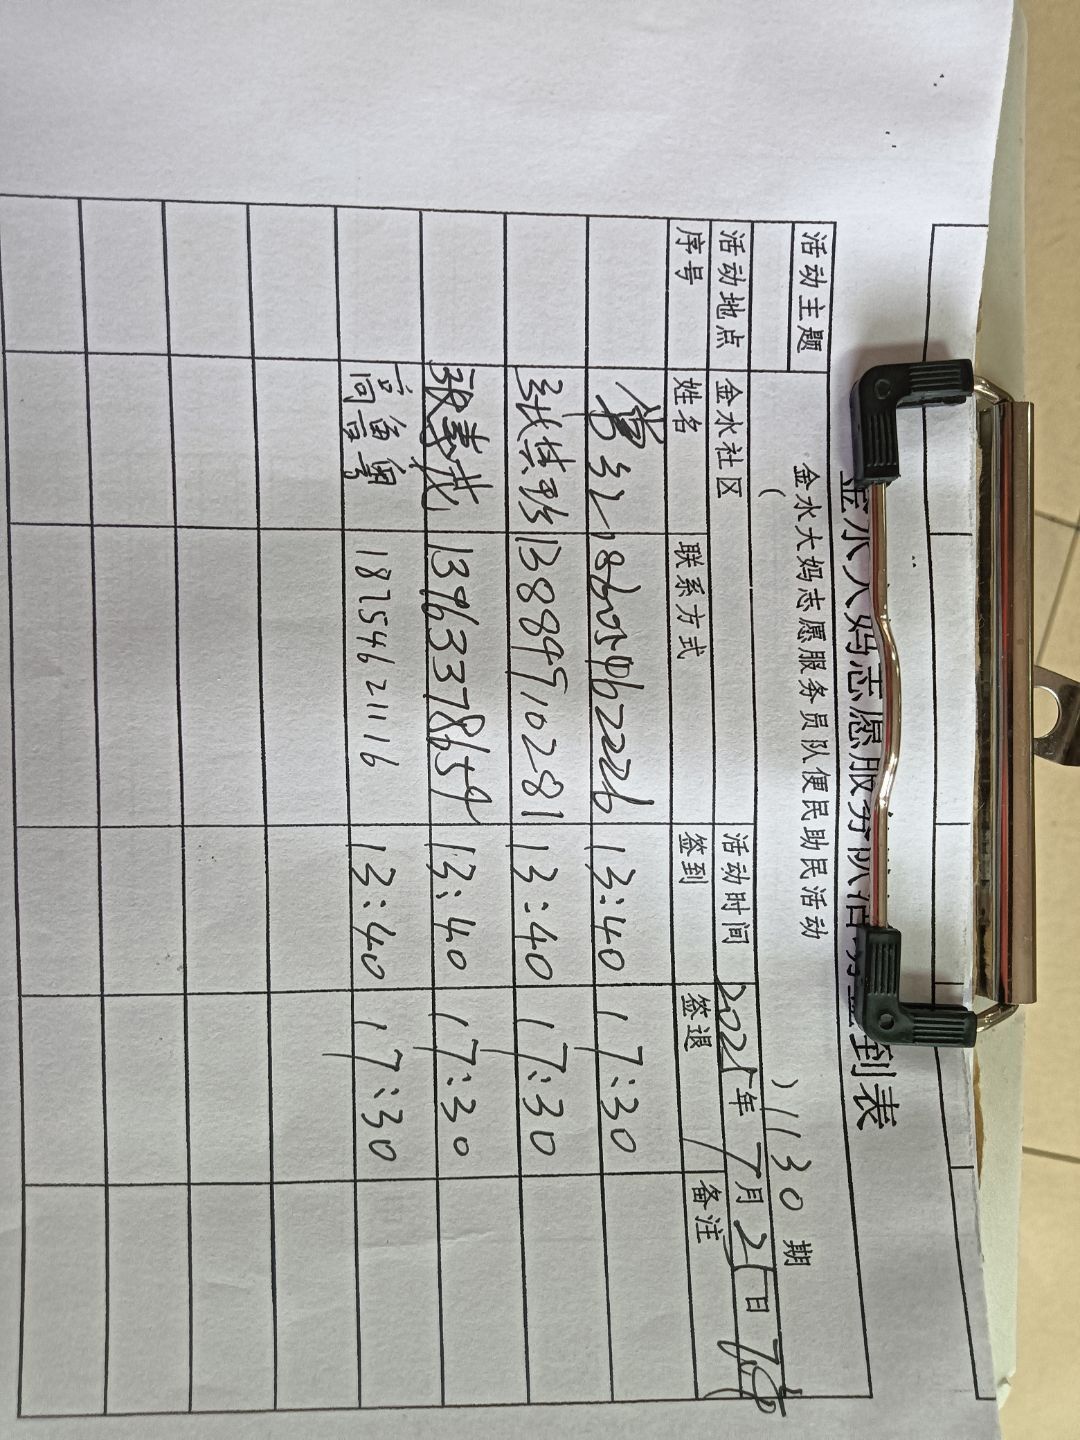 金水大妈志愿服务队活动签到表
活动主题 金水大妈志愿服务员队便民助民活动
( ) 1130 期
活动地点 金水社区 活动时间 2025年 7月 25日
序号 姓名 联系方式 签到 签退 备注
13:40 17:30
13889710281 13:40 17:30
13963378659 13:40 17:30
18754621116 13:40 17:30